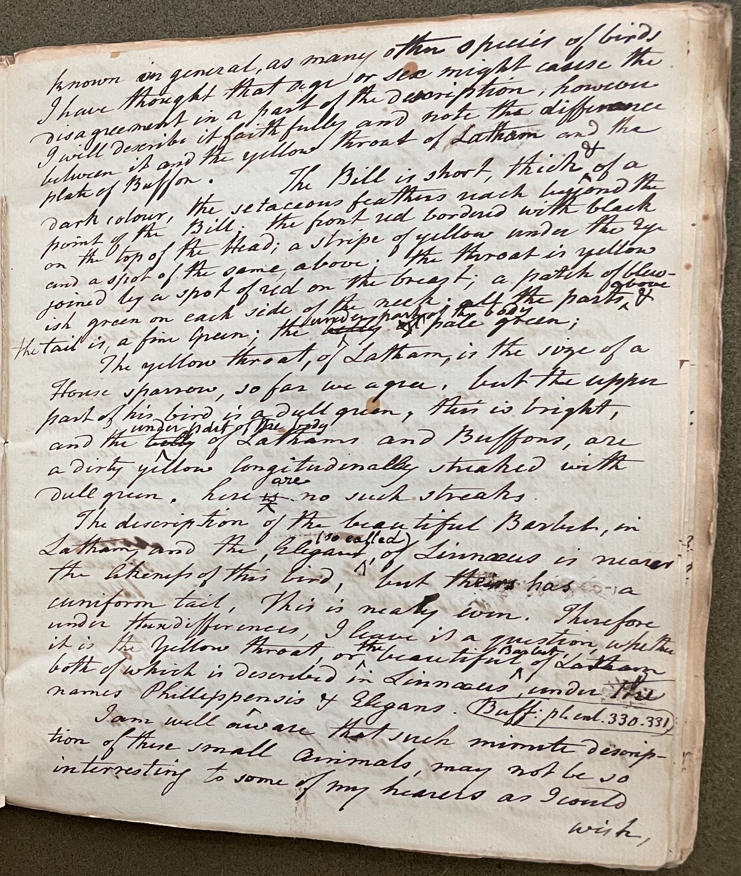 known in general, as many other species of birds
I have thought that age or sex might cause the
disagreement in a part of the description, however
I will describe it faithfully and note the difference
between it and the yellow throat of Latham and the
plate of Buffon. The Bill is short, thick & of a
dark colour, the setaceous feathers reach beyond the
point of the Bill; the front red bordered with black
on the top of the Head; a stripe of yellow under the Eye
and a spot of the same, above. the throat is yellow
joined by a spot of red on the breast; a patch of blew-
ish green on each side of the neck; all the parts above &
the tail is, a fine Green; the belly under part of the body pale green;
The yellow throat, of Latham, is the syze of a
House sparrow, so far we agree. but the upper
part of his bird is a dull green, this is bright,
and the belly under part of the body of Lathams and Buffons, are
a dirty yellow longitudinally streaked with
dull green. here is are no such streaks.
The description of the beautiful Barbut, in
Latham, and the, Elegans (so called) of Linnæus is nearer
the likeness of this bird, but theirs has a
cuniform tail, This is nealy even. Therefore
under these differences, I leave it a question, whether
it is the Yellow throat, or the beautiful Barbut, of Latham
both of which is described in Linnæus under the
names Phillippensis & Elegans. Buff: pl. enl. 330. 331
I am well aware that such minute descrip-
tion of these small Animals, may not be so
interresting to some of my hearers as I could
wish,